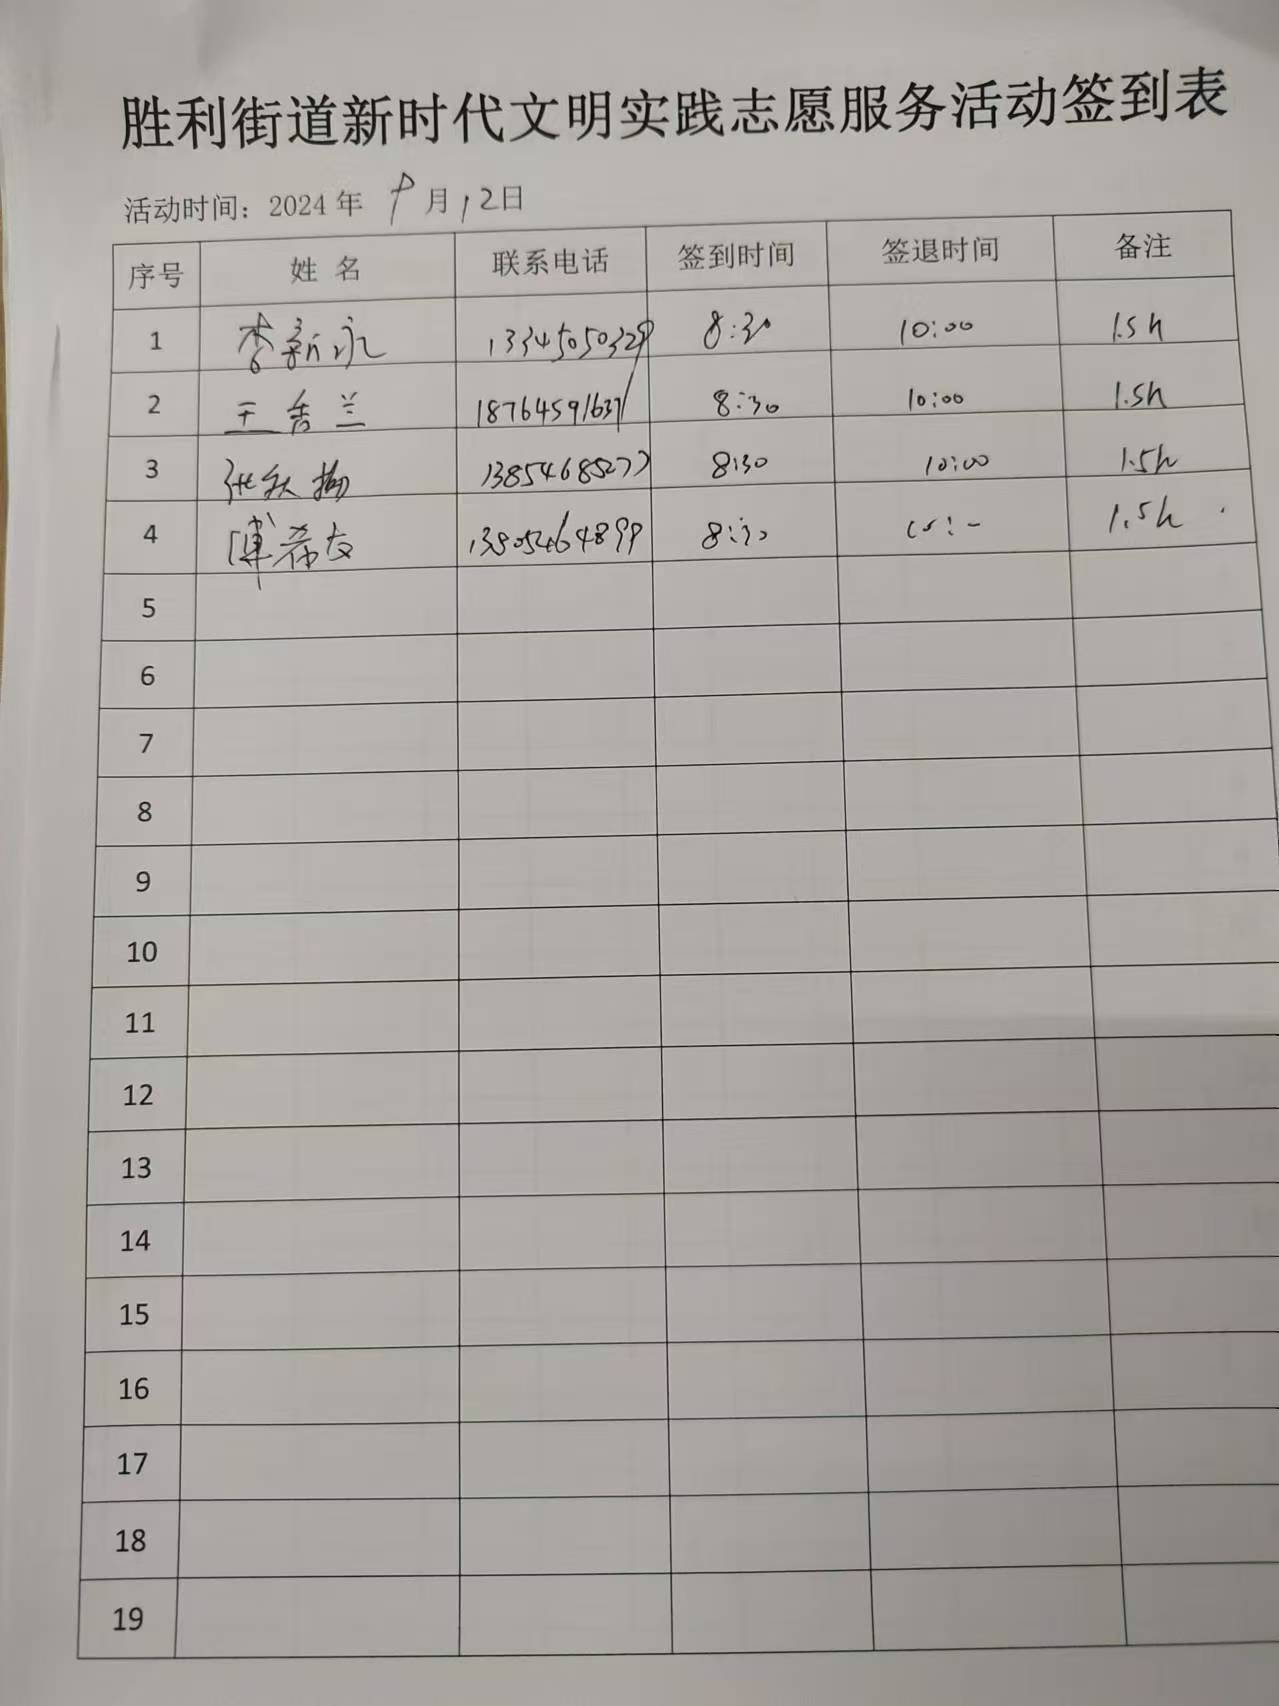 胜利街道新时代文明实践志愿服务活动签到表
活动时间：2024年 9月12日
序号 姓 名 联系电话 签到时间 签退时间 备注
1 李新永 13345050329 8:30 10:00 1.5h
2 王秀兰 18764591637 8:30 10:00 1.5h
3 张秋梅 13854685277 8:30 10:00 1.5h
4 傅希友 13805464899 8:30 1.5h
5
6
7
8
9
10
11
12
13
14
15
16
17
18
19